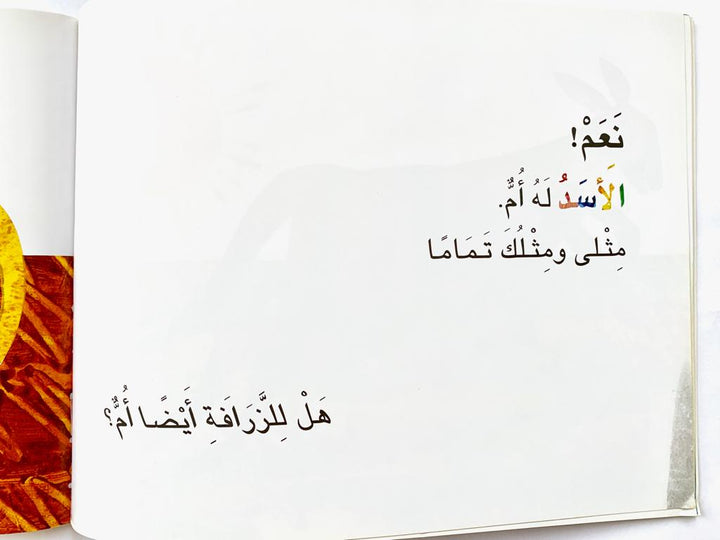 نَعَمْ!
الَأسَدُ لَهُ أُمٌّ.
مِثْلى ومِثْلُكَ تَمَامًا
هَلْ لِلزَّرَافَةِ أَيْضًا أُمٌّ؟